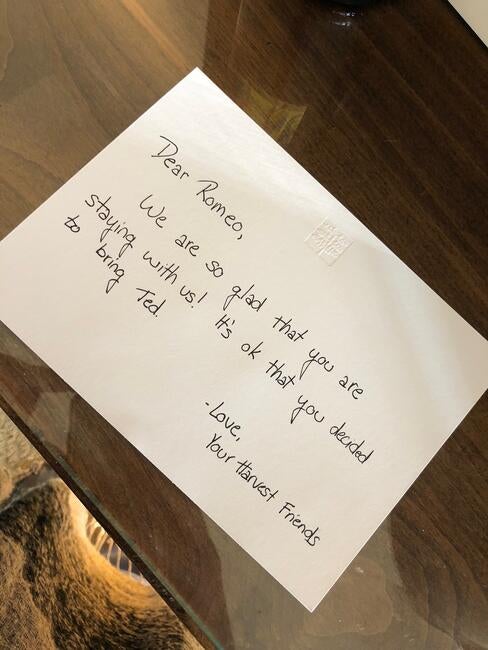 Dear Romeo,
We are so glad that you are
staying with us! It's ok that you decided
to bring Ted.
-Love,
Your Harvest Friends